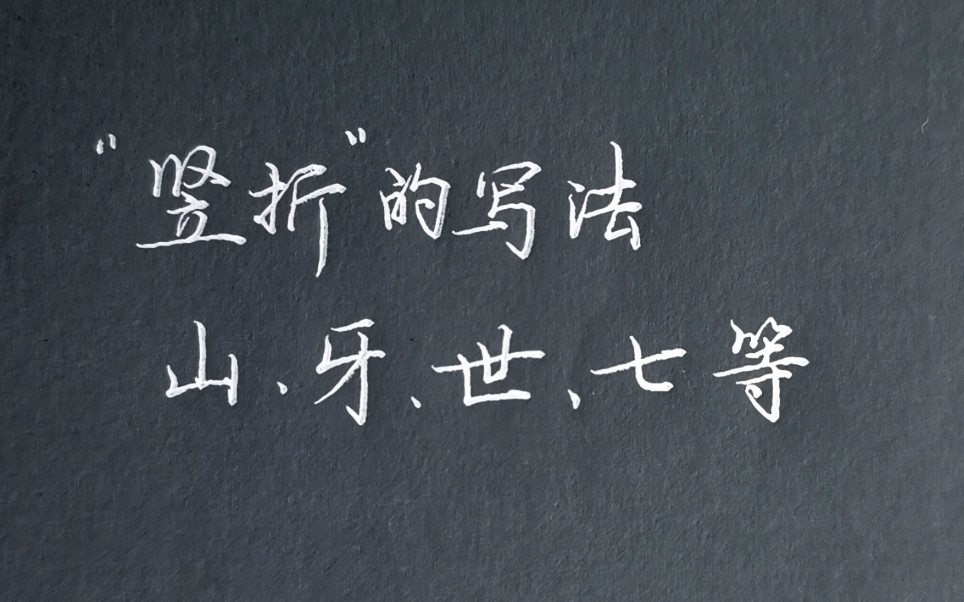 “竖折”的写法
山、牙、世、七等